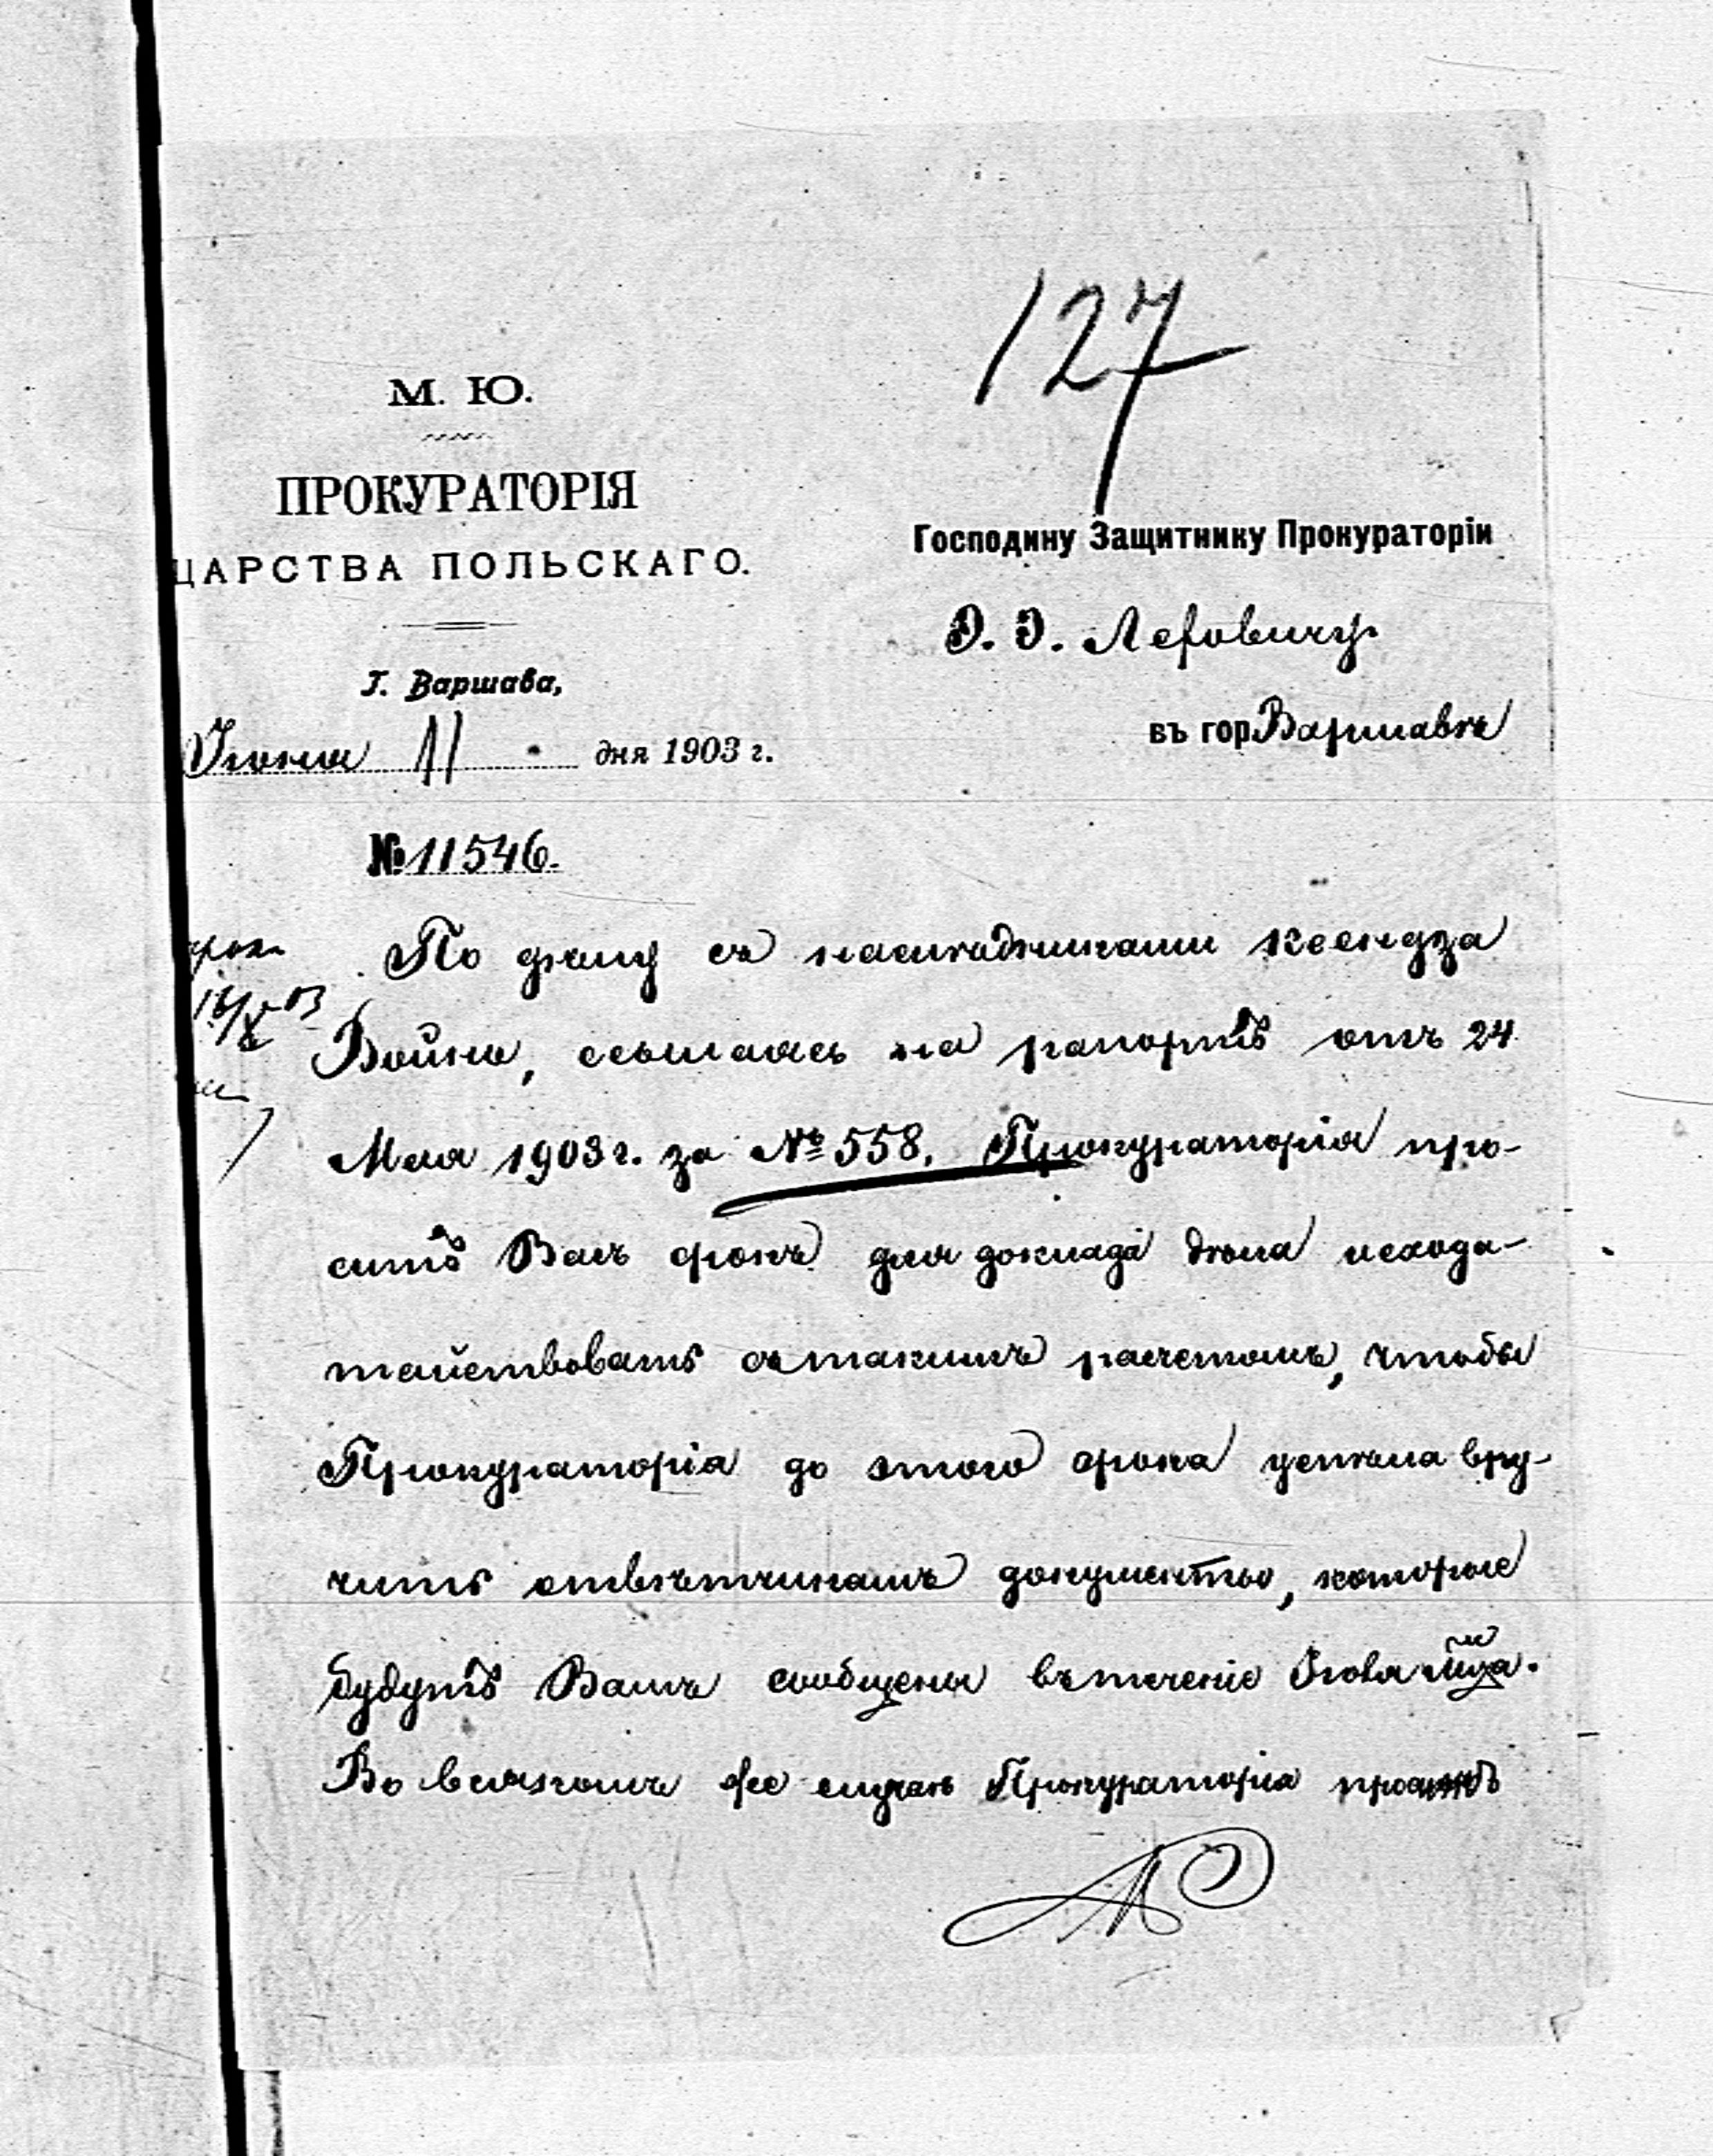 127
М. Ю.
ПРОКУРАТОРІЯ
ЦАРСТВА ПОЛЬСКАГО.
Г. Варшава,
Іюня 11 дня 1903 г.
№ 11546.
Господину Защитнику Прокураторіи
Э. Э. Леровичу
въ гор Варшавѣ
срокъ
По дѣлу съ наслѣдниками ксендза
Войно, ссылаясь на рапортъ отъ 24
Мая 1903 г. за № 558, Прокураторія про-
ситъ Васъ срокъ для доклада дѣла исхода-
тайствовать съ такимъ расчетомъ, чтобы
Прокураторія до этого срока успѣла вру-
чить отвѣтчикамъ документы, которые
будутъ Вамъ сообщены въ теченіе Іюля м-ца.
Во всякомъ же случаѣ Прокураторія проситъ